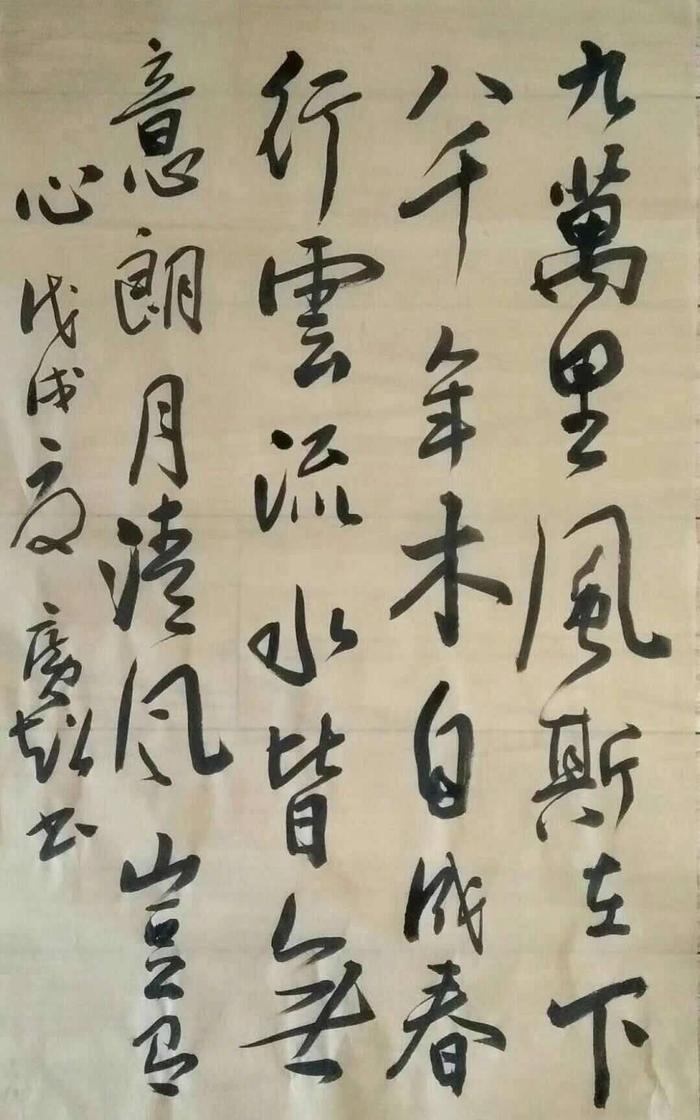 九萬里風斯在下
八千年木自成春
行雲流水皆無
意朗月清風豈有
心戊戌夏廣彭書